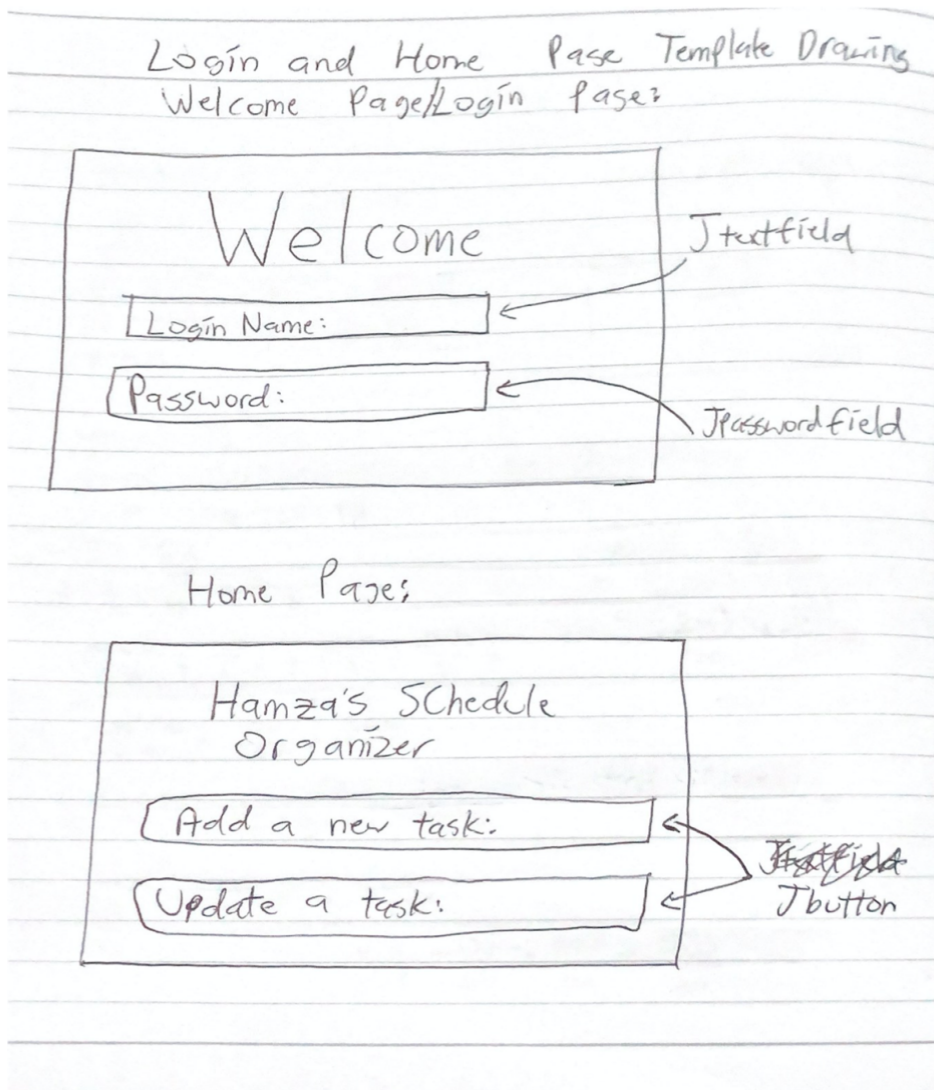 Login and Home Page Template Drawing
Welcome Page/Login Page:
Welcome
Jtextfield
Login Name:
Password:
Jpasswordfield
Home Page:
Hamza's SChedule
Organizer
Add a new task:
Update a task:
Jtextfield
Jbutton